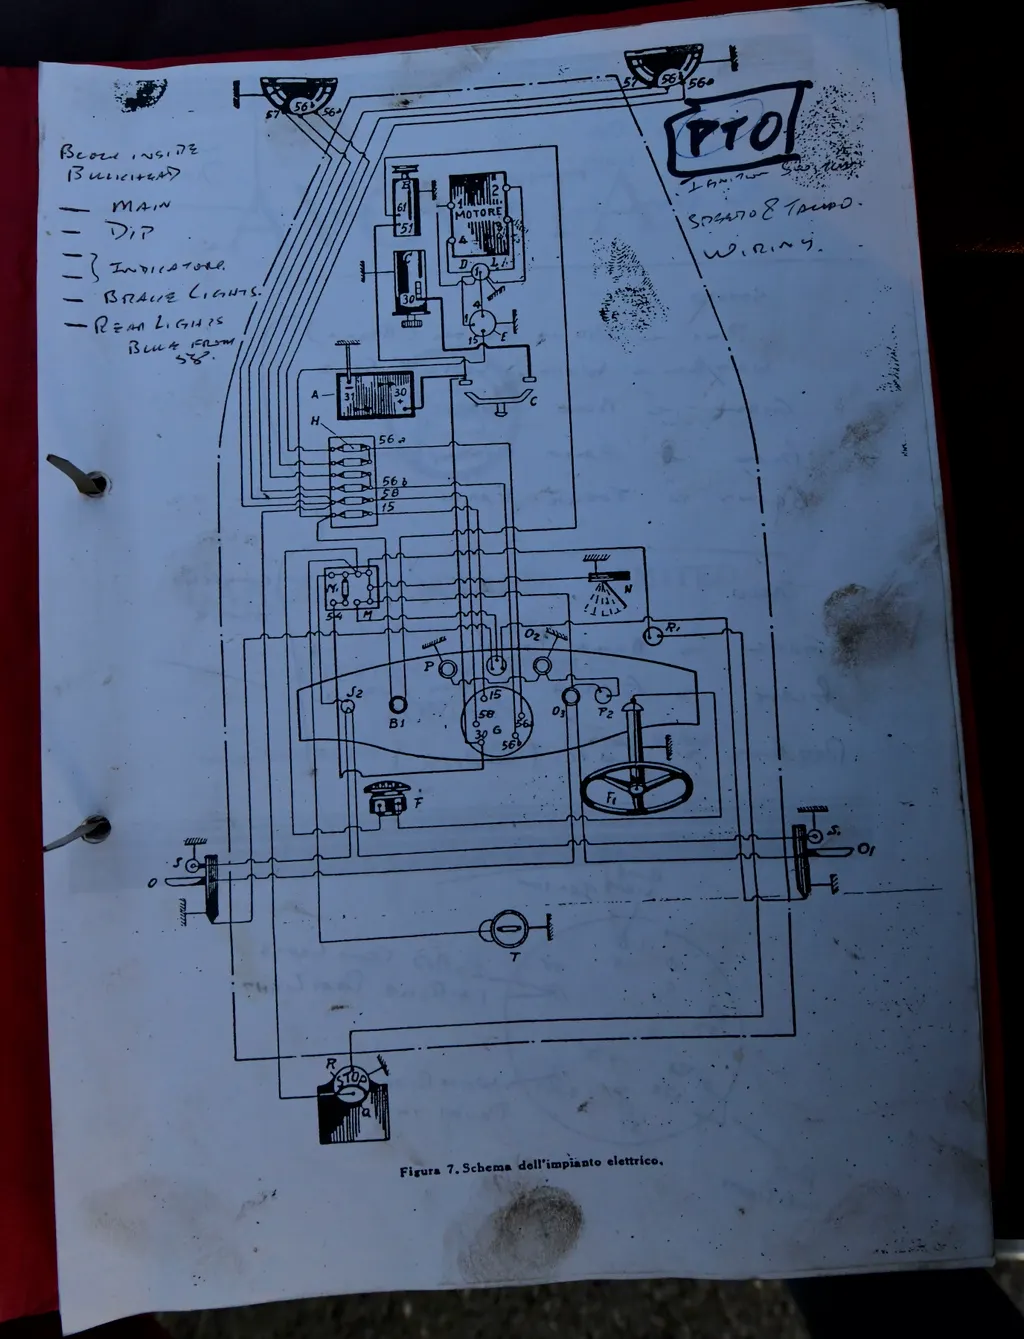 57 56b 56a
57 56 56a
PTO
IGNITION SWITCH
SPEEDO & TACHO.
WIRING.
BLOCK INSIDE
BULKHEAD
— MAIN
— DIP
— } INDICATORS.
— BRAKE LIGHTS.
— REAR LIGHTS
B
61
51
2
1
MOTORE
4
D
C
30
4
15 E
A
31
30
+
C
H
56a
56b
58
15
M1
54
M
N
R1
O2
P
S2
B1
15
58
G
56a
30
56b
O3
P2
F
F1
S
O
S1
O1
T
R
STOP
Q
Figura 7. Schema dell'impianto elettrico.